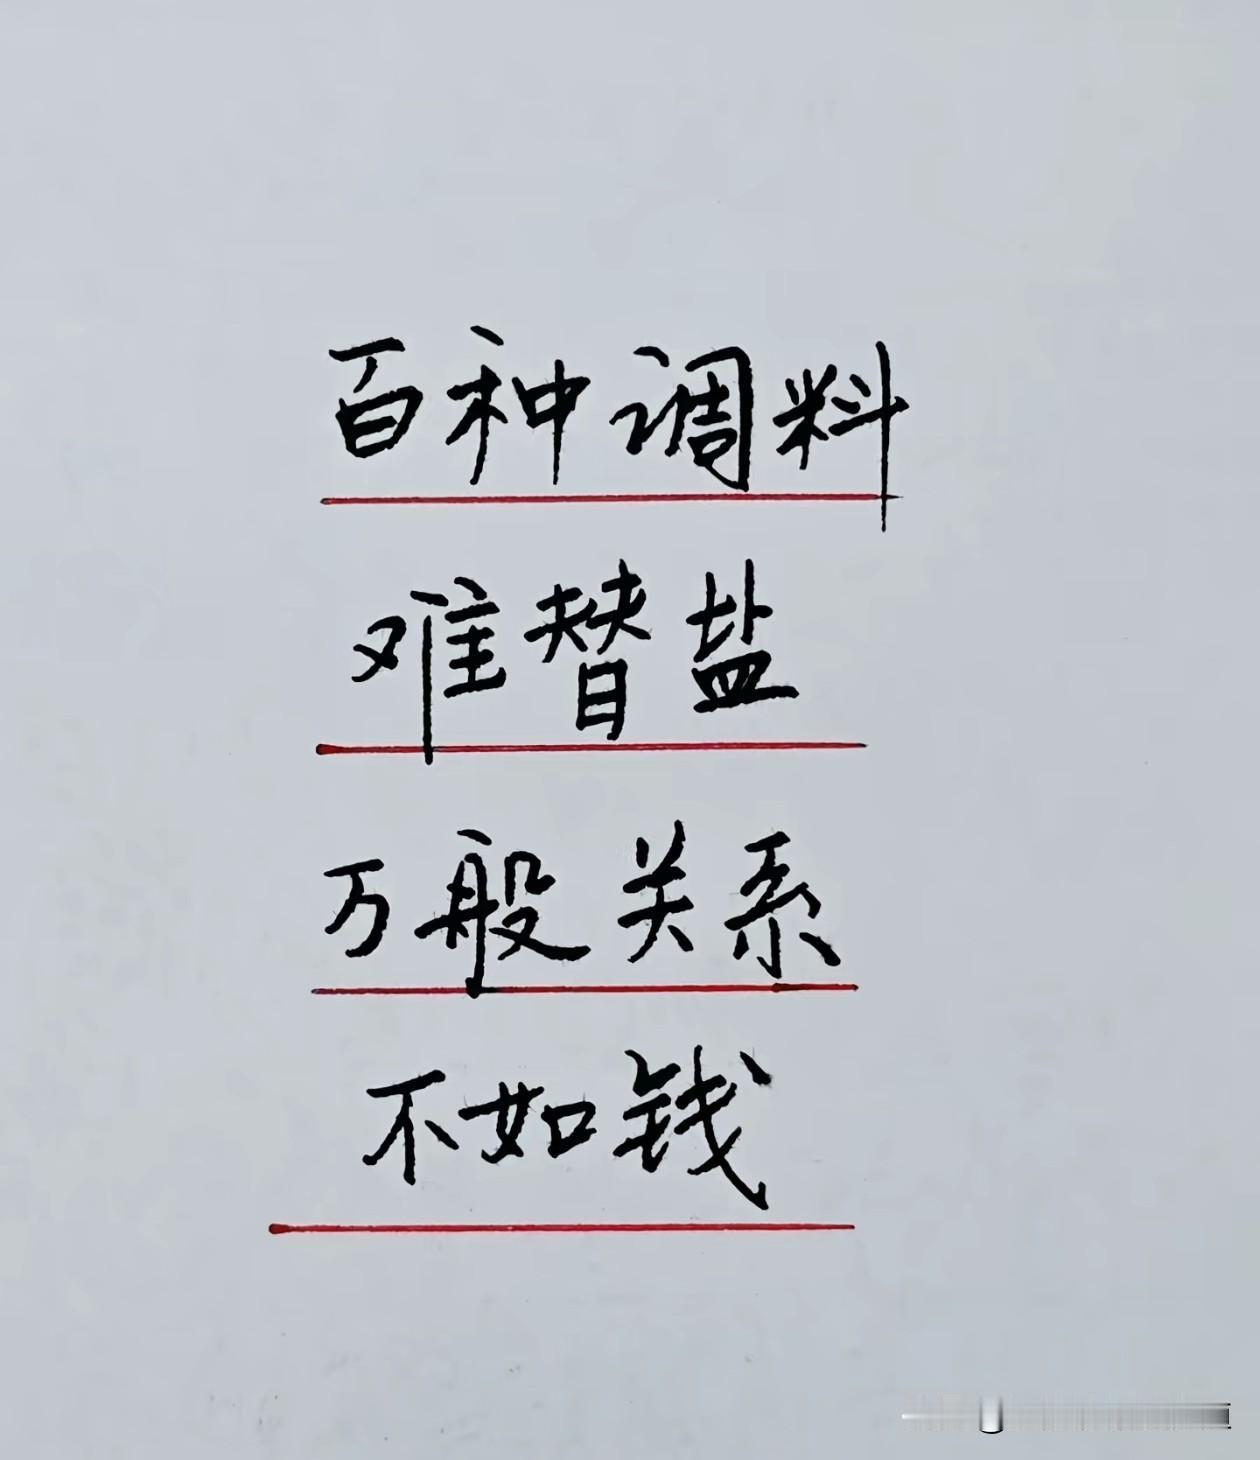 百种调料
难替盐
万般关系
不如钱